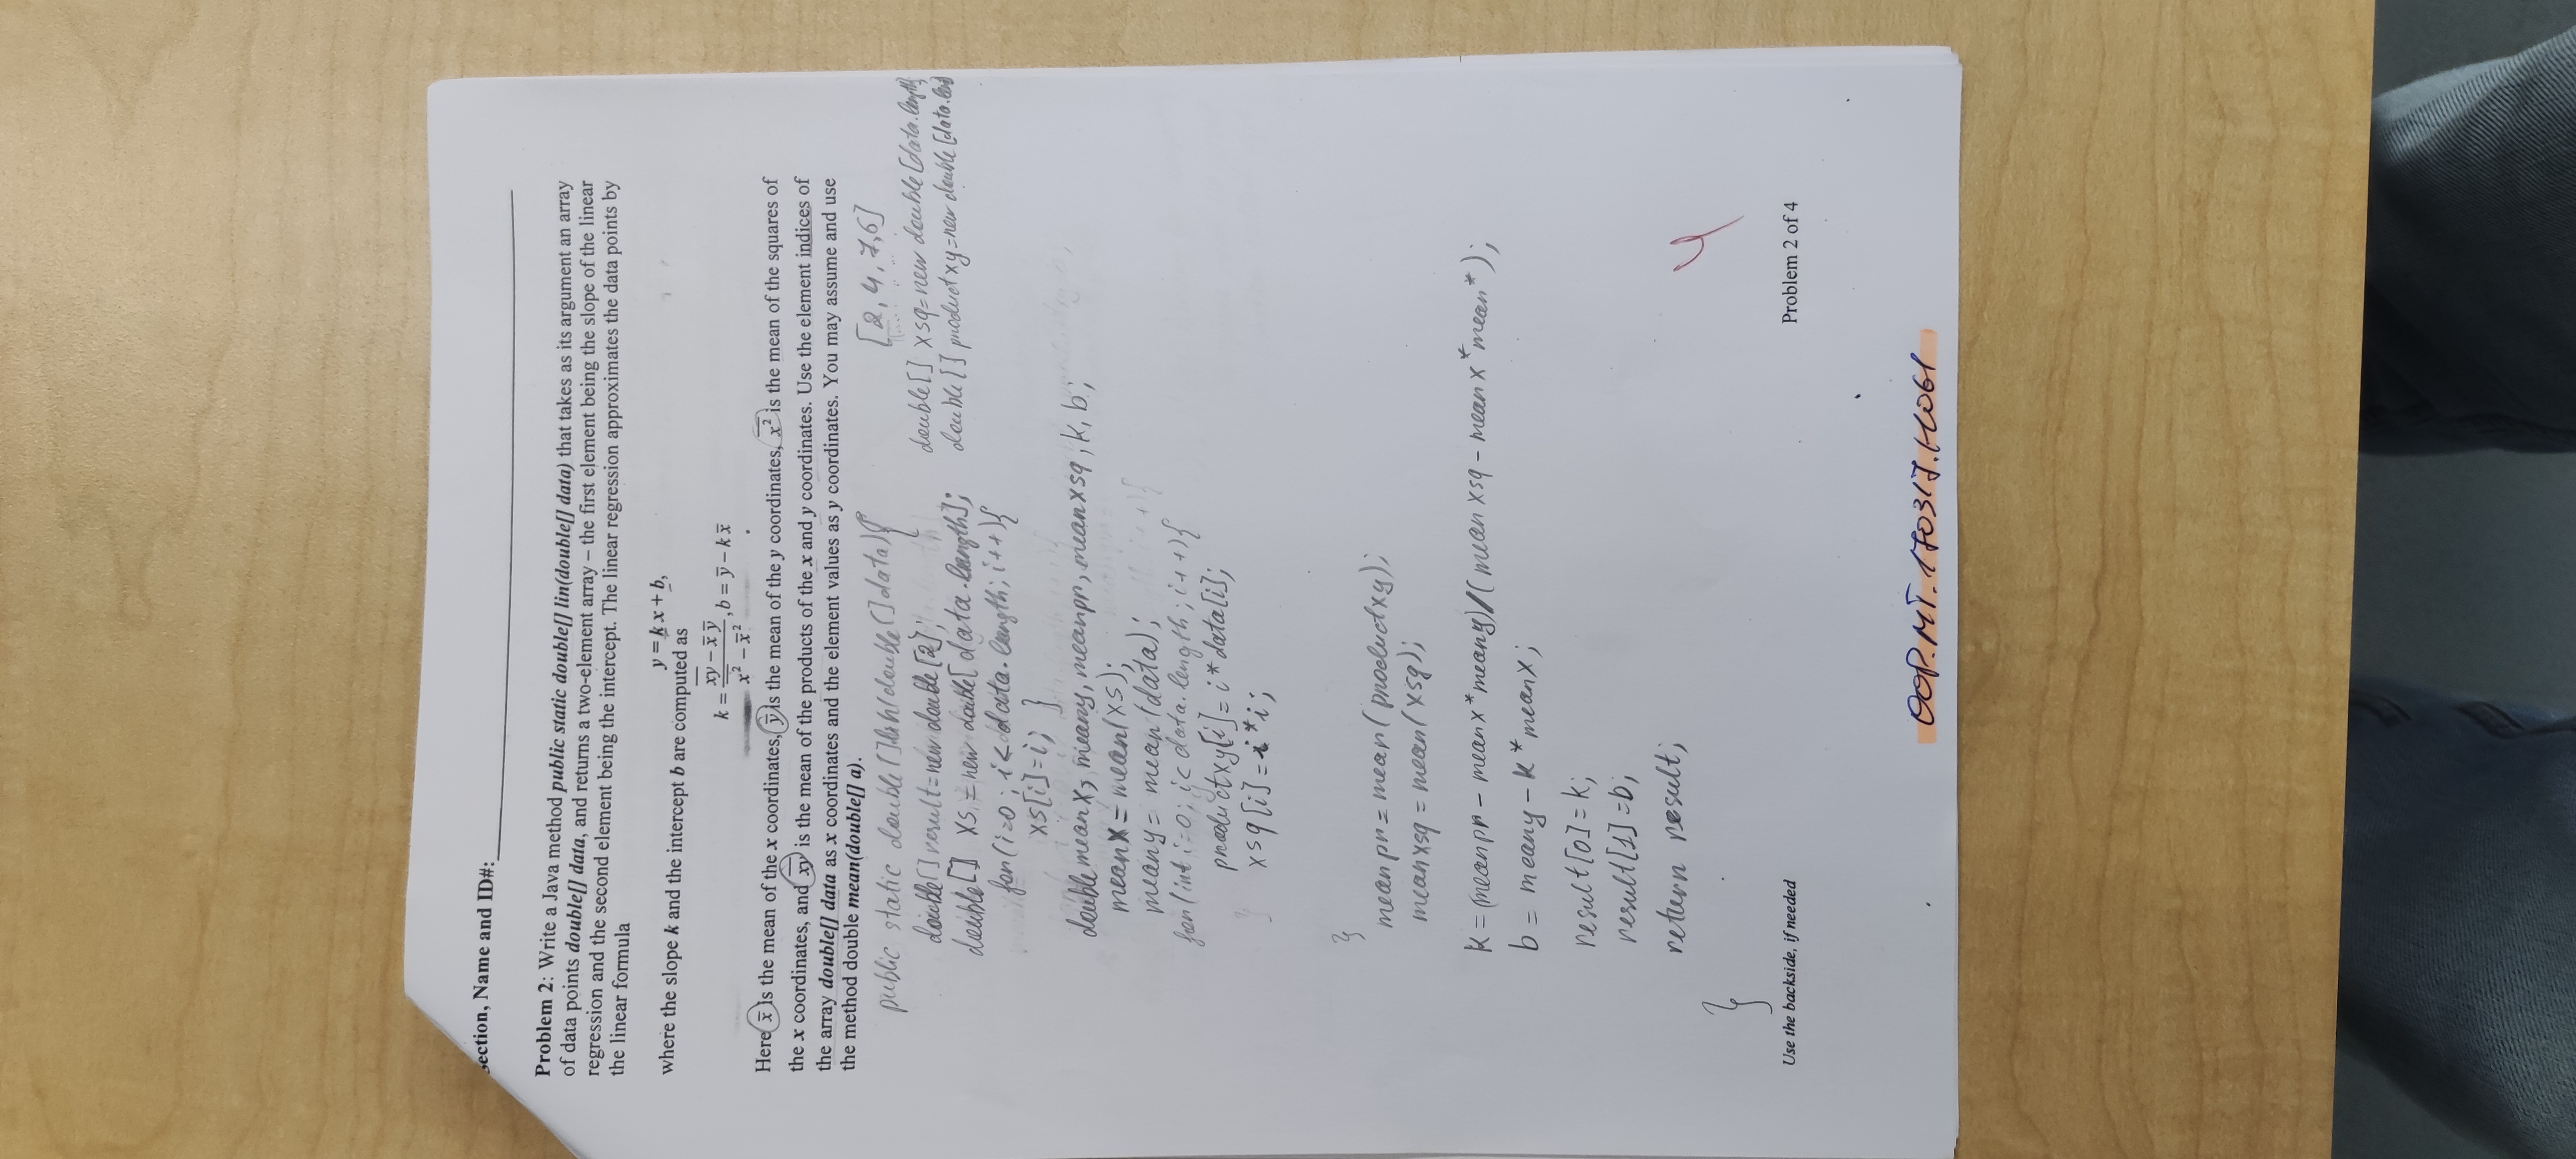 Section, Name and ID#:
Problem 2: Write a Java method public static double[] lin(double[] data) that takes as its argument an array
of data points double[] data, and returns a two-element array – the first element being the slope of the linear
regression and the second element being the intercept. The linear regression approximates the data points by
the linear formula
y = k x + b,
where the slope k and the intercept b are computed as
k = (x̅y̅ – x̅ y̅) / (x̅²̅ – x̅ ²), b = y̅ – k x̅
Here x̅ is the mean of the x coordinates, y̅ is the mean of the y coordinates, x̅²̅ is the mean of the squares of
the x coordinates, and x̅y̅ is the mean of the products of the x and y coordinates. Use the element indices of
the array double[] data as x coordinates and the element values as y coordinates. You may assume and use
the method double mean(double[] a).
[2, 4, 7, 6]
public static double[] lin(double[] data){
double[] result = new double[2];
double[] xsq = new double[data.length]
double[] xs = new double[data.length];
double[] productxy = new double[data.leng
for(i=0; i<data.length; i++){
xs[i]=i; }
double meanx, meany, meanpr, meanxsq, k, b;
meanx = mean(xs);
meany = mean(data);
for(int i=0; i<data.length; i++){
productxy[i] = i*data[i];
xsq[i] = i*i;
}
}
meanpr = mean(productxy);
meanxsq = mean(xsq);
k = (meanpr - meanx*meany)/(meanxsq - meanx*mean*);
b = meany - k*meanx;
result[0] = k;
result[1] = b;
return result;
}
4
Use the backside, if needed
Problem 2 of 4